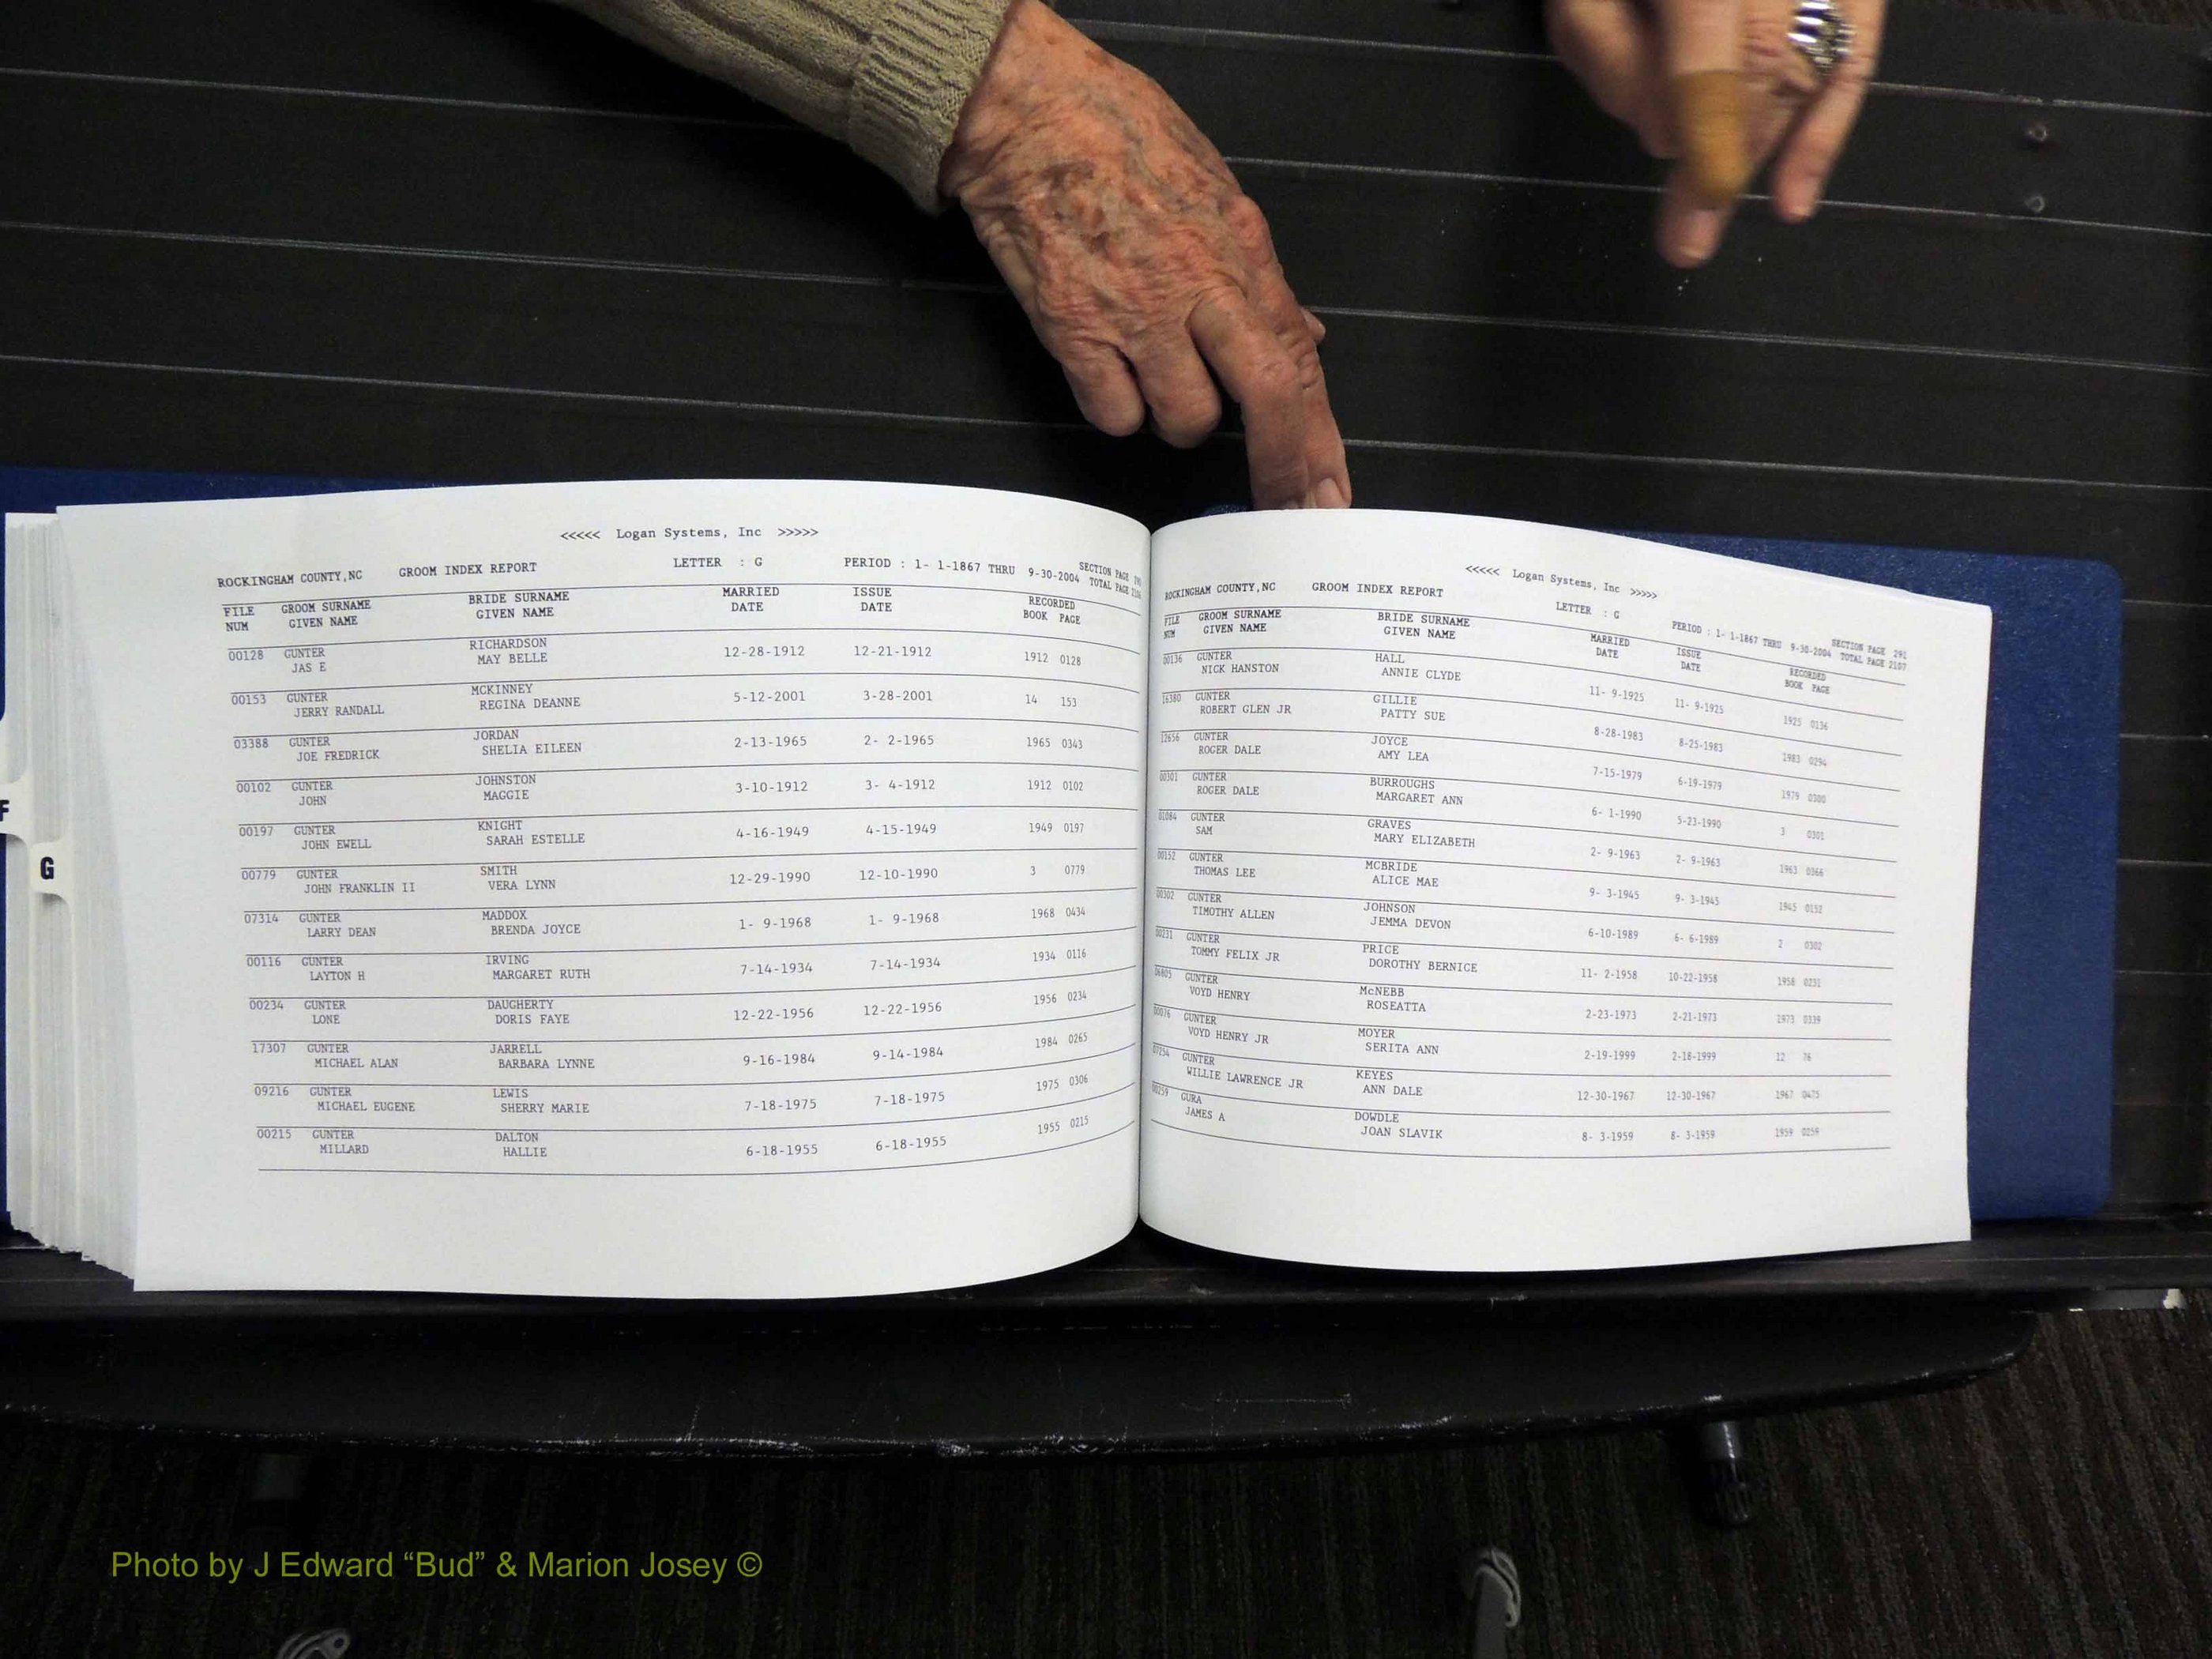 <<<<< Logan Systems, Inc >>>>>
ROCKINGHAM COUNTY,NC GROOM INDEX REPORT LETTER : G PERIOD : 1- 1-1867 THRU 9-30-2004 SECTION PAGE
TOTAL PAGE
FILE GROOM SURNAME BRIDE SURNAME MARRIED ISSUE RECORDED
NUM GIVEN NAME GIVEN NAME DATE DATE BOOK PAGE
00128 GUNTER RICHARDSON 12-28-1912 12-21-1912 1912 0128
JAS E MAY BELLE
00153 GUNTER MCKINNEY 5-12-2001 3-28-2001 14 153
JERRY RANDALL REGINA DEANNE
03388 GUNTER JORDAN 2-13-1965 2- 2-1965 1965 0343
JOE FREDRICK SHELIA EILEEN
00102 GUNTER JOHNSTON 3-10-1912 3- 4-1912 1912 0102
JOHN MAGGIE
00197 GUNTER KNIGHT 4-16-1949 4-15-1949 1949 0197
JOHN EWELL SARAH ESTELLE
00779 GUNTER SMITH 12-29-1990 12-10-1990 3 0779
JOHN FRANKLIN II VERA LYNN
07314 GUNTER MADDOX 1- 9-1968 1- 9-1968 1968 0434
LARRY DEAN BRENDA JOYCE
00116 GUNTER IRVING 7-14-1934 7-14-1934 1934 0116
LAYTON H MARGARET RUTH
00234 GUNTER DAUGHERTY 12-22-1956 12-22-1956 1956 0234
LONE DORIS FAYE
17307 GUNTER JARRELL 9-16-1984 9-14-1984 1984 0265
MICHAEL ALAN BARBARA LYNNE
09216 GUNTER LEWIS 7-18-1975 7-18-1975 1975 0306
MICHAEL EUGENE SHERRY MARIE
00215 GUNTER DALTON 6-18-1955 6-18-1955 1955 0215
MILLARD HALLIE
F
G
<<<<< Logan Systems, Inc >>>>>
ROCKINGHAM COUNTY,NC GROOM INDEX REPORT LETTER : G PERIOD : 1- 1-1867 THRU 9-30-2004 SECTION PAGE 291
TOTAL PAGE 2107
FILE GROOM SURNAME BRIDE SURNAME MARRIED ISSUE RECORDED
NUM GIVEN NAME GIVEN NAME DATE DATE BOOK PAGE
00136 GUNTER HALL 11- 9-1925 11- 9-1925 1925 0136
NICK HANSTON ANNIE CLYDE
16380 GUNTER GILLIE 8-28-1983 8-25-1983 1983 0294
ROBERT GLEN JR PATTY SUE
12656 GUNTER JOYCE 7-15-1979 6-19-1979 1979 0300
ROGER DALE AMY LEA
00301 GUNTER BURROUGHS 6- 1-1990 5-23-1990 3 0301
ROGER DALE MARGARET ANN
01084 GUNTER GRAVES 2- 9-1963 2- 9-1963 1963 0366
SAM MARY ELIZABETH
00152 GUNTER MCBRIDE 9- 3-1945 9- 3-1945 1945 0152
THOMAS LEE ALICE MAE
00302 GUNTER JOHNSON 6-10-1989 6- 6-1989 2 0302
TIMOTHY ALLEN JEMMA DEVON
00231 GUNTER PRICE 11- 2-1958 10-22-1958 1958 0231
TOMMY FELIX JR DOROTHY BERNICE
06805 GUNTER McNEBB 2-23-1973 2-21-1973 1973 0339
VOYD HENRY ROSEATTA
00076 GUNTER MOYER 2-19-1999 2-18-1999 12 76
VOYD HENRY JR SERITA ANN
07254 GUNTER KEYES 12-30-1967 12-30-1967 1967 0475
WILLIE LAWRENCE JR ANN DALE
00259 GURA DOWDLE 8- 3-1959 8- 3-1959 1959 0259
JAMES A JOAN SLAVIK
Photo by J Edward “Bud” & Marion Josey ©